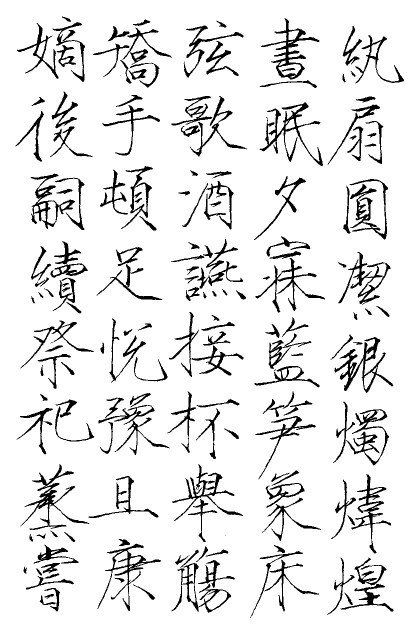 紈扇圓潔銀燭煒煌
晝眠夕寐藍笋象床
弦歌酒讌接杯舉觴
矯手頓足悅豫且康
嫡後嗣續祭祀蒸嘗